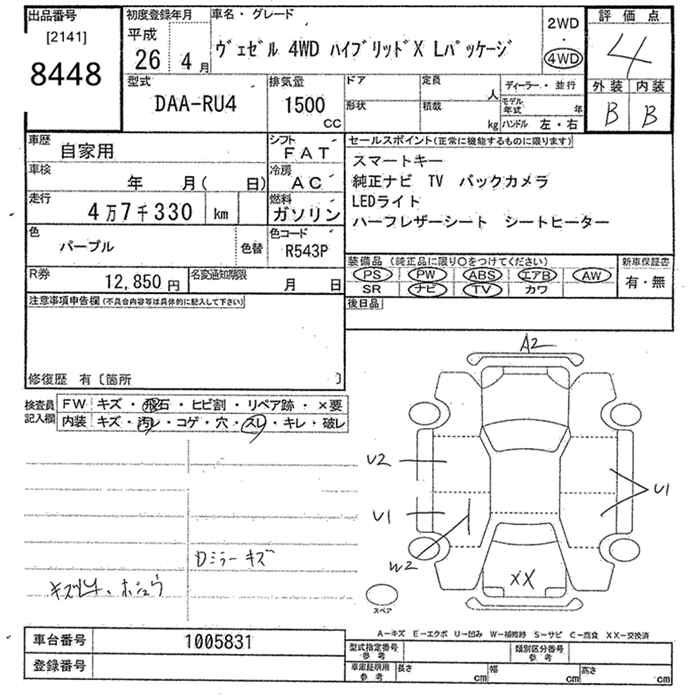 出品番号
[2141]
8448
初度登録年月
平成
26 4 月
車名・グレード
ヴェゼル 4WD ハイブリッドX Lパッケージ
2WD
・
4WD
評価点
4
外装 内装
B B
型式
DAA-RU4
排気量
1500
cc
ドア
定員
人
形状
積載
kg
ディーラー・並行
モデル年式 年
ハンドル 左・右
車歴
自家用
シフト
FAT
車検
年 月( 日)
冷房
AC
走行
4万7千330 km
燃料
ガソリン
色
パープル
色替
色コード
R543P
R券
12,850 円
名変通知期限
月 日
セールスポイント(正常に機能するものに限ります)
スマートキー
純正ナビ TV バックカメラ
LEDライト
ハーフレザーシート シートヒーター
装備品 (純正品に限り○をつけてください)
PS PW ABS エアB AW
SR ナビ TV カワ
新車保証書
有・無
後日品
注意事項申告欄(不具合内容等は具体的に記入して下さい)
修復歴 有〔箇所 〕
検査員
記入欄
FW キズ・飛石・ヒビ割・リペア跡・×要
内装 キズ・汚レ・コゲ・穴・スレ・キレ・破レ
A2
U2
U1
U1
W2
XX
Dミラーキズ
スペア
A-キズ E-エクボ U-凹み W-補修跡 S-サビ C-腐食 XX-交換済
車台番号
1005831
登録番号
型式指定番号
参考
類別区分番号
参考
車庫証明用
参考
長さ cm
幅 cm
高さ cm